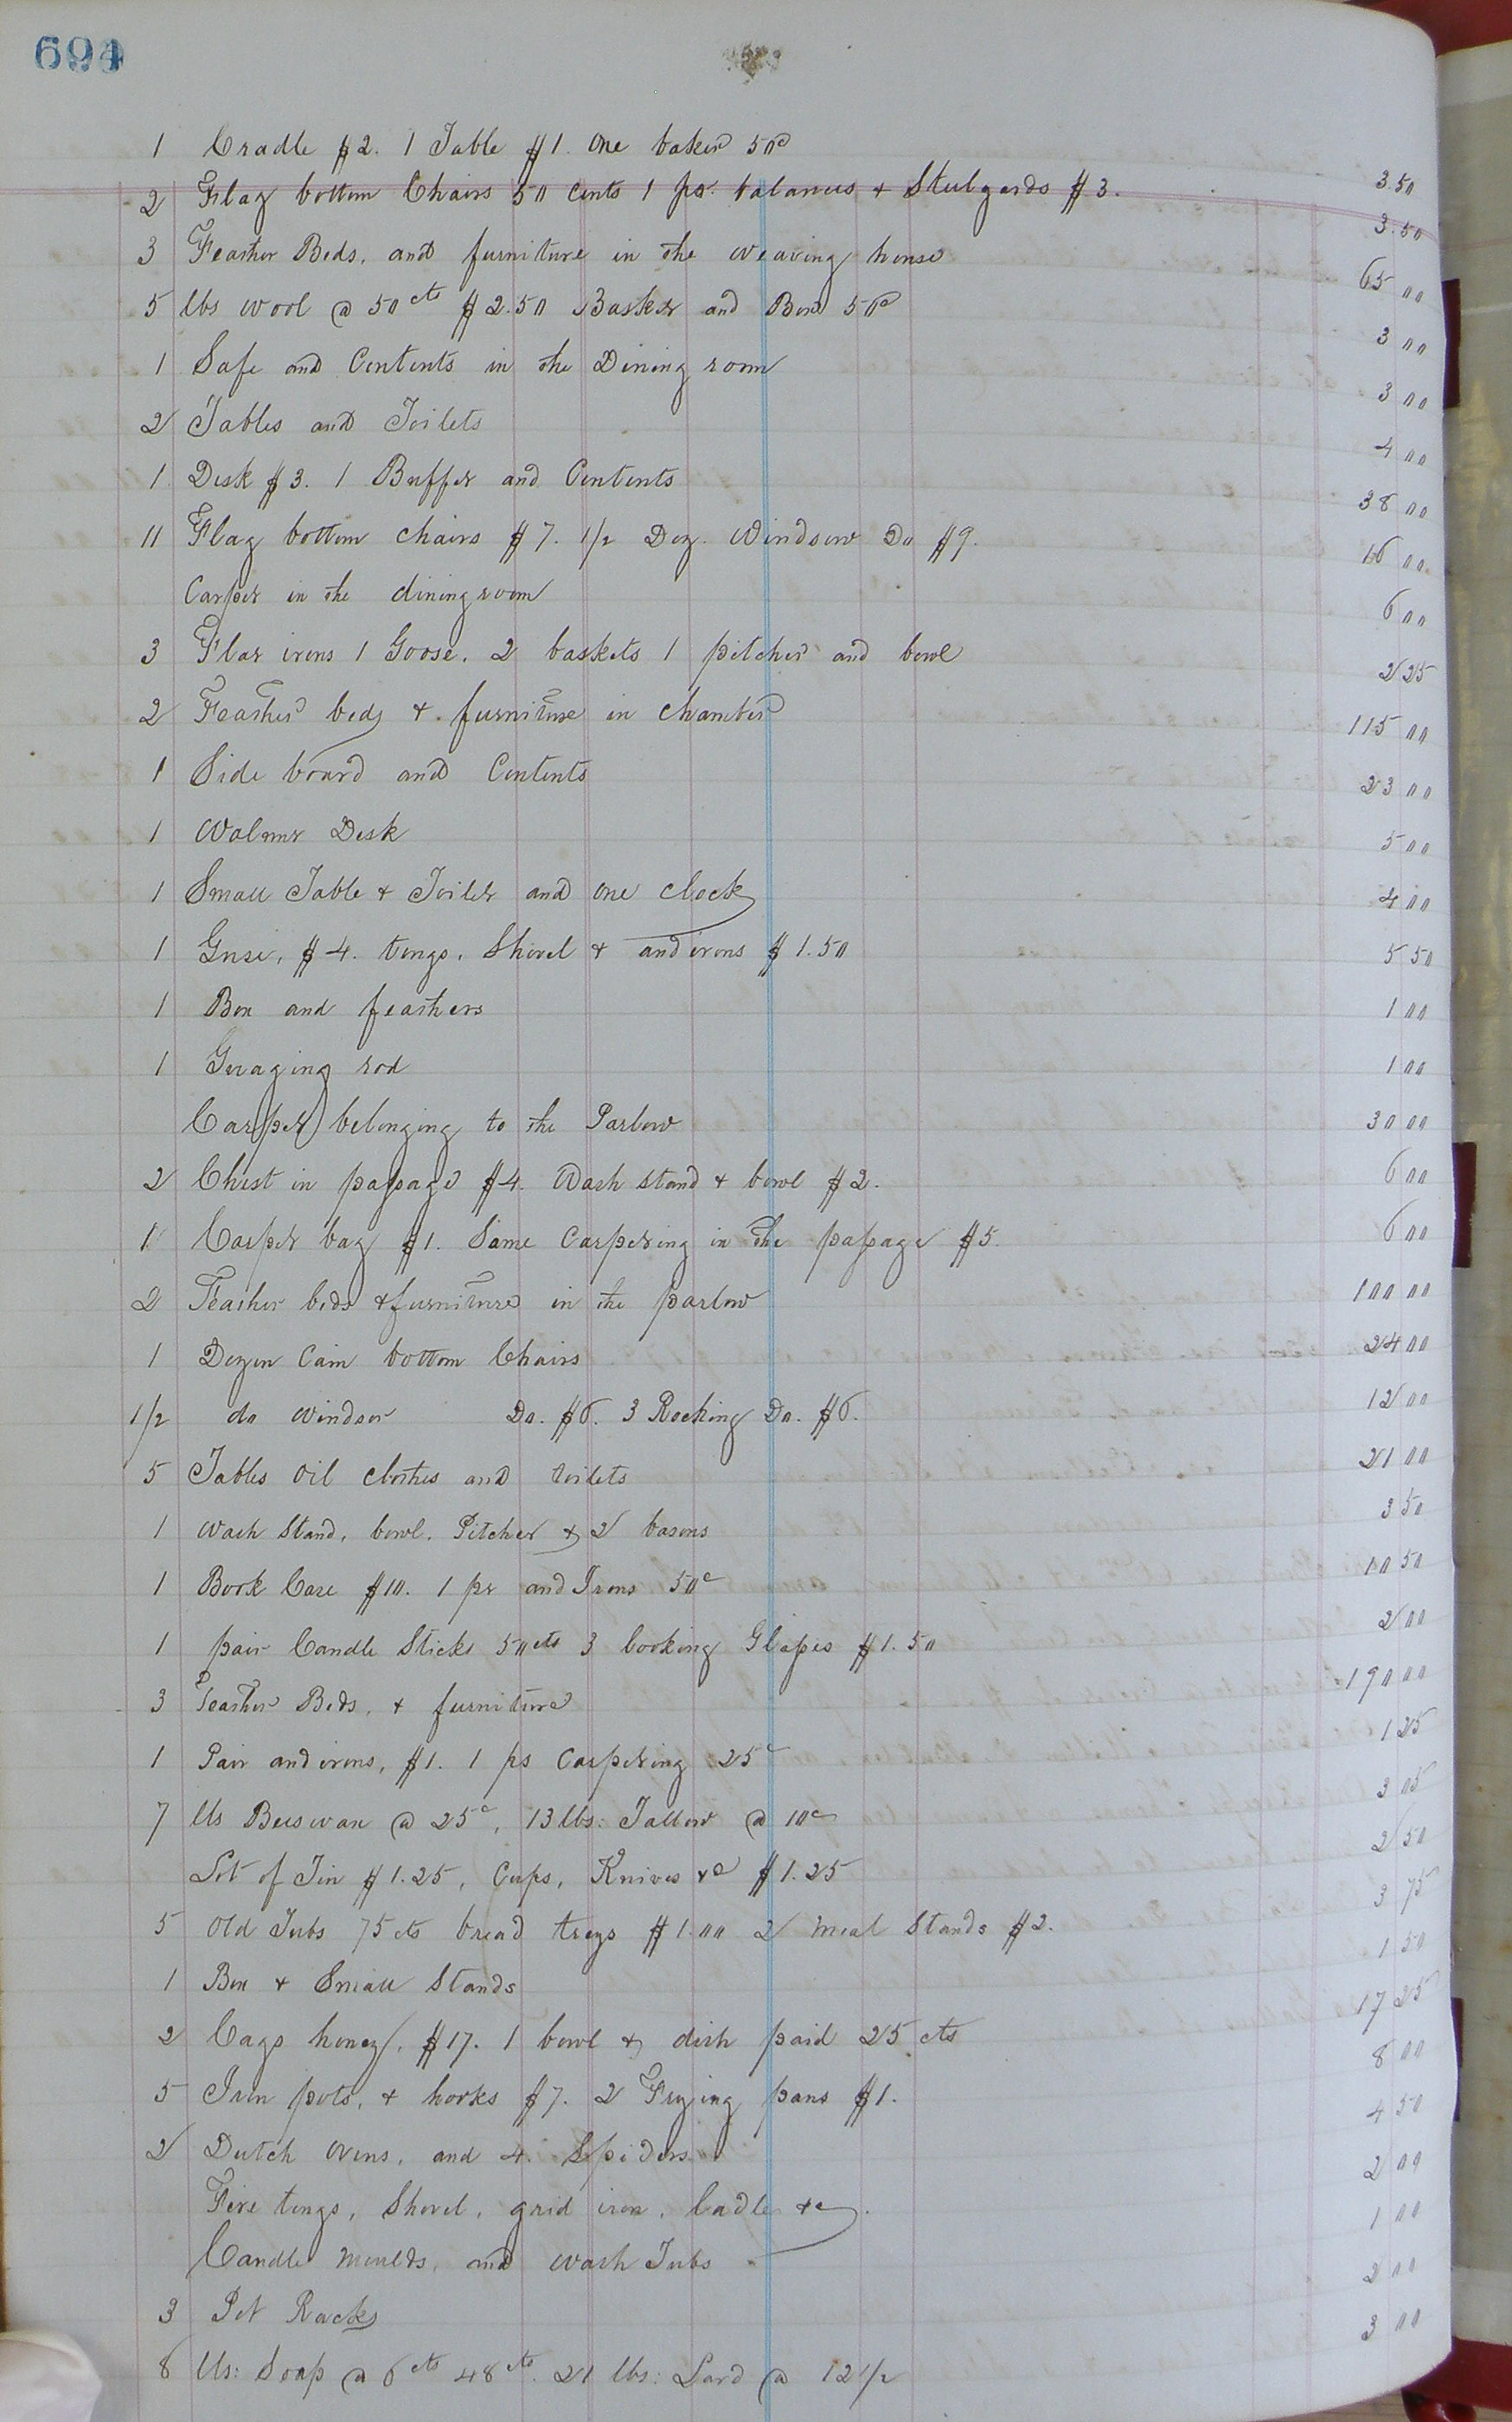 694
1 Cradle $2. 1 Table $1. One basket 50c 3.50
2 Flag bottom Chairs 50 cents 1 pr. balances + Steelyards $3. 3.50
3 Feather Beds, and furniture in the weaving house 65 00
5 lbs wool @ 50cts $2.50 Basket and Box 50c 3 00
1 Safe and Contents in the Dining room 3 00
2 Tables and Toilets 4 00
1 Desk $3. 1 Buffet and Contents 38 00
11 Flag bottom chairs $7. 1/2 Doz. Windsor Do $9. 16 00
Carpet in the dining room 6 00
3 Flat irons 1 Goose. 2 baskets 1 pitcher and bowl 2 25
2 Feather beds + furniture in chamber 115 00
1 Side board and Contents 23 00
1 Walnut Desk 5 00
1 Small Table + Toilet and one clock 4 00
1 $4. tongs, Shovel + andirons $1.50 5 50
1 Box and feathers 1 00
1 Guaging rod 1 00
Carpet belonging to the Parlow 30 00
2 Chest in passage $4. Wash stand + bowl $2. 6 00
1 Carpet bag $1. Same Carpeting in the passage $5. 6 00
2 Feather beds + furniture in the parlow 100 00
1 Dozen Cain bottom Chairs 24 00
1/2 do windsor Do. $6. 3 Rocking Do. $6. 12 00
5 Tables oil clothes and toilets 21 00
1 Wash Stand, bowl, Pitcher + 2 basons 3 50
1 Book Case $10. 1 pr and Irons 50c 10 50
1 pair Candle Sticks 50cts 3 looking Glasses $1.50 2 00
3 Feather Beds, + furniture 190 00
1 Pair andirons, $1. 1 ps Carpeting 25c 1 25
7 lbs Beeswax @ 25c, 13 lbs: Tallow @ 10c 3 05
Lot of Tin $1.25, Cups, Knives +c $1.25 2 50
5 Old Tubs 75cts bread trays $1.00 2 meal Stands $2. 3 75
1 Box + Small Stands 1 50
2 Cags honey, $17. 1 bowl + dish paid 25 cts 17 25
5 Iron pots, + hooks $7. 2 Frying pans $1. 8 00
2 Dutch ovens, and 4 Spiders 4 50
Fire tongs, Shovel, grid iron, Ladle +c. 2 00
Candle moulds, and wash Tubs 1 00
3 Pot Racks 2 00
8 lbs: Soap @ 6cts 48cts. 21 lbs: Lard @ 12 1/2 3 00